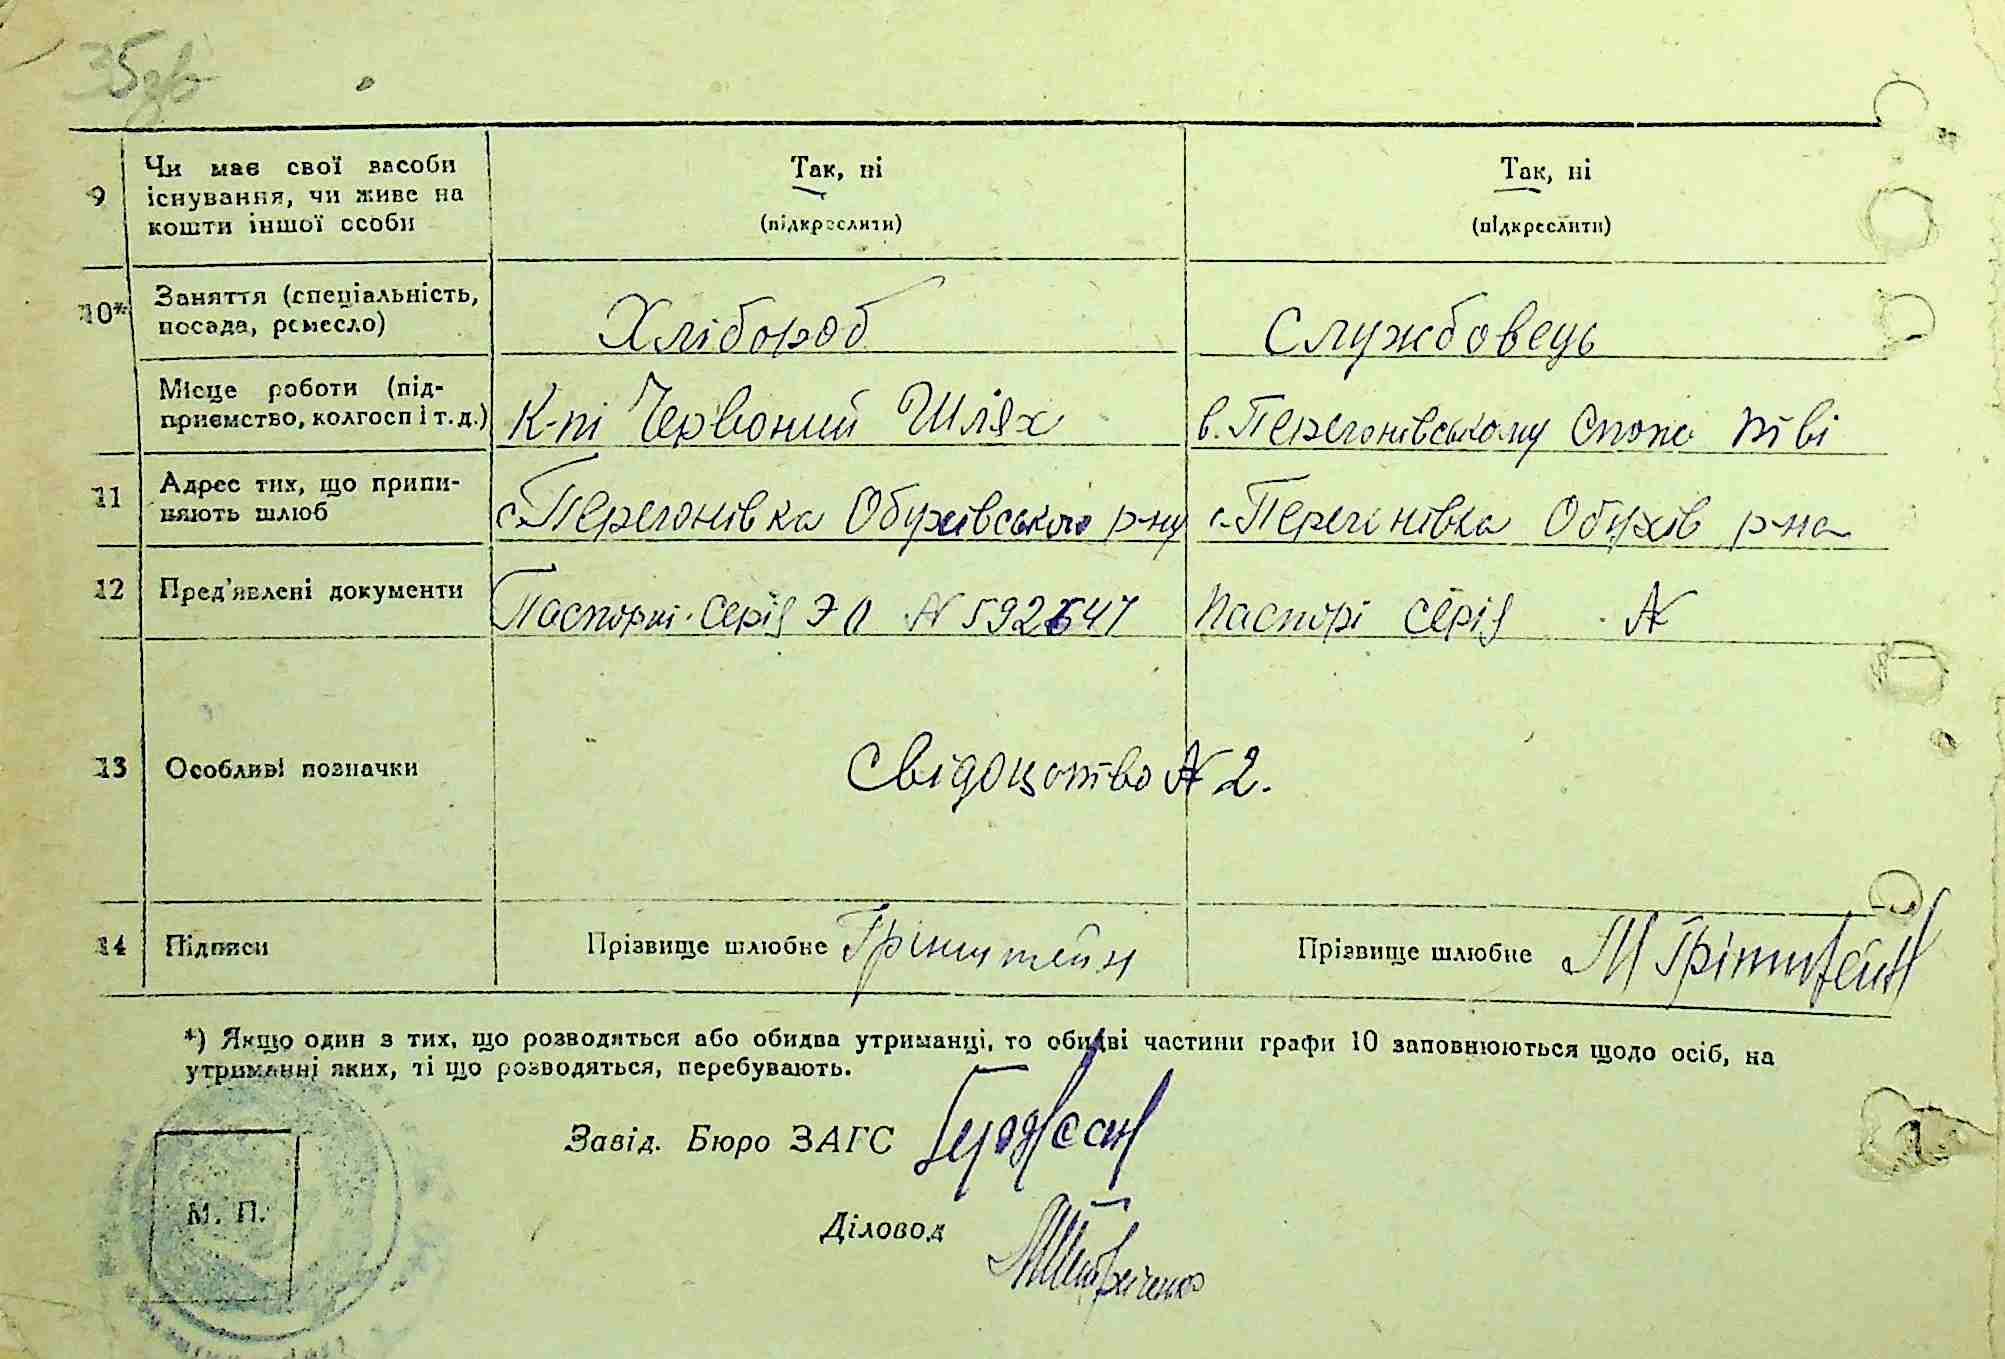 35зв
9 Чи має свої засоби Так, ні Так, ні
існування, чи живе на
кошти іншої особи (підкреслити) (підкреслити)
10* Заняття (спеціальність, Хлібороб Службовець
посада, ремесло)
Місце роботи (під-
приємство, колгосп і т. д.) К-пі Червоний Шлях в. Перегонівському Спожо тві
11 Адрес тих, що припи- с. Перегонівка Обухівського р-ну с. Перегонівка Обухів р-на
няють шлюб
12 Пред'явлені документи Паспорт. Серія ЭЛ № 592647 Паспорт серія №
13 Особливі позначки Свідоцтво № 2.
14 Підписи Прізвище шлюбне Грінштейн Прізвище шлюбне М Грінштейн
*) Якщо один з тих, що розводяться або обидва утриманці, то обидві частини графи 10 заповнюються щодо осіб, на
утриманні яких, ті що розводяться, перебувають.
Завід. Бюро ЗАГС
М. П.
Діловод